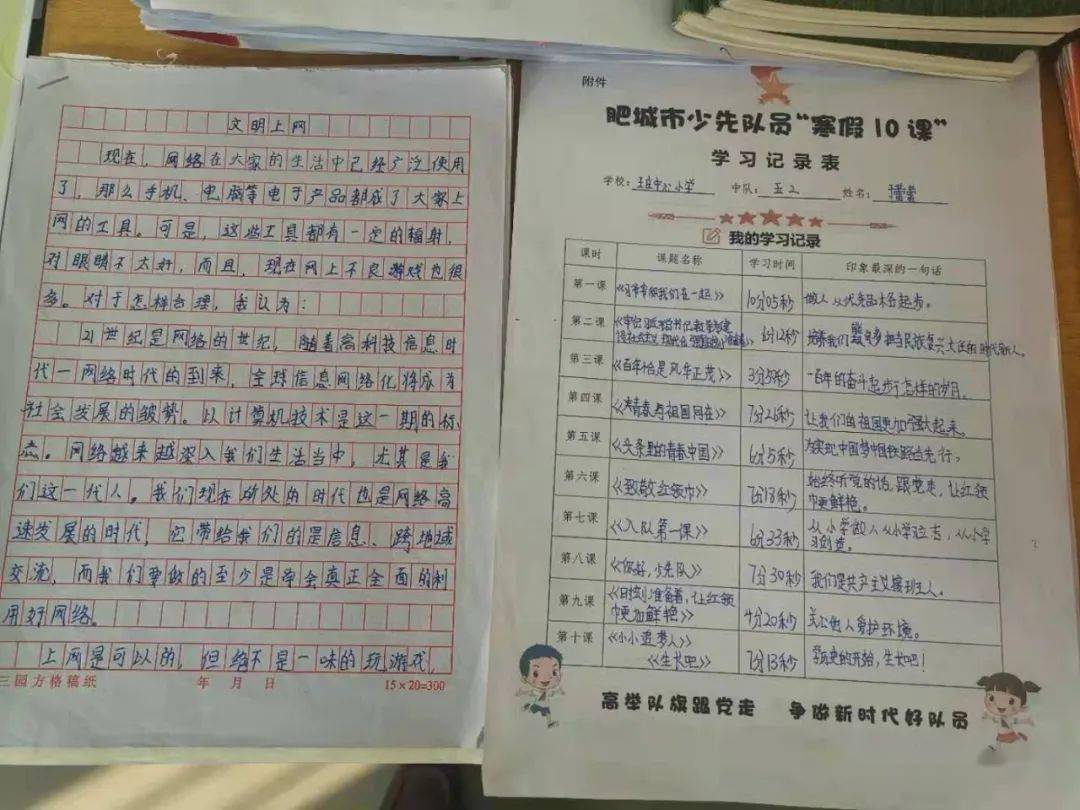 文明上网
现在，网络在大家的生活中已经广泛使用
了，那么手机、电脑等电子产品都成了大家上
网的工具。可是，这些工具都有一定的辐射，
对眼睛不太好，而且，现在网上不良游戏也很
多。对于怎样合理，我认为：
21世纪是网络的世纪，随着高科技信息时
代一网络时代的到来，全球信息网络化将成为
社会发展的趋势。以计算机技术是这一期的标
态。网络越来越深入我们生活当中，尤其是我
们这一代人。我们现在所处的时代也是网络高
速发展的时代，它带给我们的是信息、跨地域
交流，而我们要做的至少是学会真正全面的利
用好网络。
上网是可以的，但绝不是一味的玩游戏，
三园方格稿纸 年 月 日 15×20=300
附件
肥城市少先队员“寒假10课”
学习记录表
学校：王庄中心小学 中队：五2 姓名：
我的学习记录
课时 课题名称 学习时间 印象最深的一句话
第一课 《习爷爷和我们在一起》 10分05秒 做人从优秀品格起步。
第二课 6分12秒 培养我们能够担当民族复兴大任的时代新人。
第三课 《百年恰是风华正茂》 3分59秒 一百年的奋斗起步于怎样的岁月。
第四课 《青春与祖国同在》 7分26秒 让我们的祖国更加强大起来。
第五课 《头条里的青春中国》 6分15秒 为实现中国梦中国铁路当先行，
第六课 《致敬红领巾》 7分18秒 始终听党的话，跟党走，让红领
巾更鲜艳。
第七课 《入队第一课》 6分33秒 从小学做人从小学立志，从小学
习创造。
第八课 《你好，少先队》 7分30秒 我们是共产主义接班人。
第九课 《时刻准备着，让红领
巾更加鲜艳》 4分20秒 关心他人爱护环境。
第十课 《小小追梦人》
《生长吧》 7分13秒 的开始，生长吧！
高举队旗跟党走 争做新时代好队员